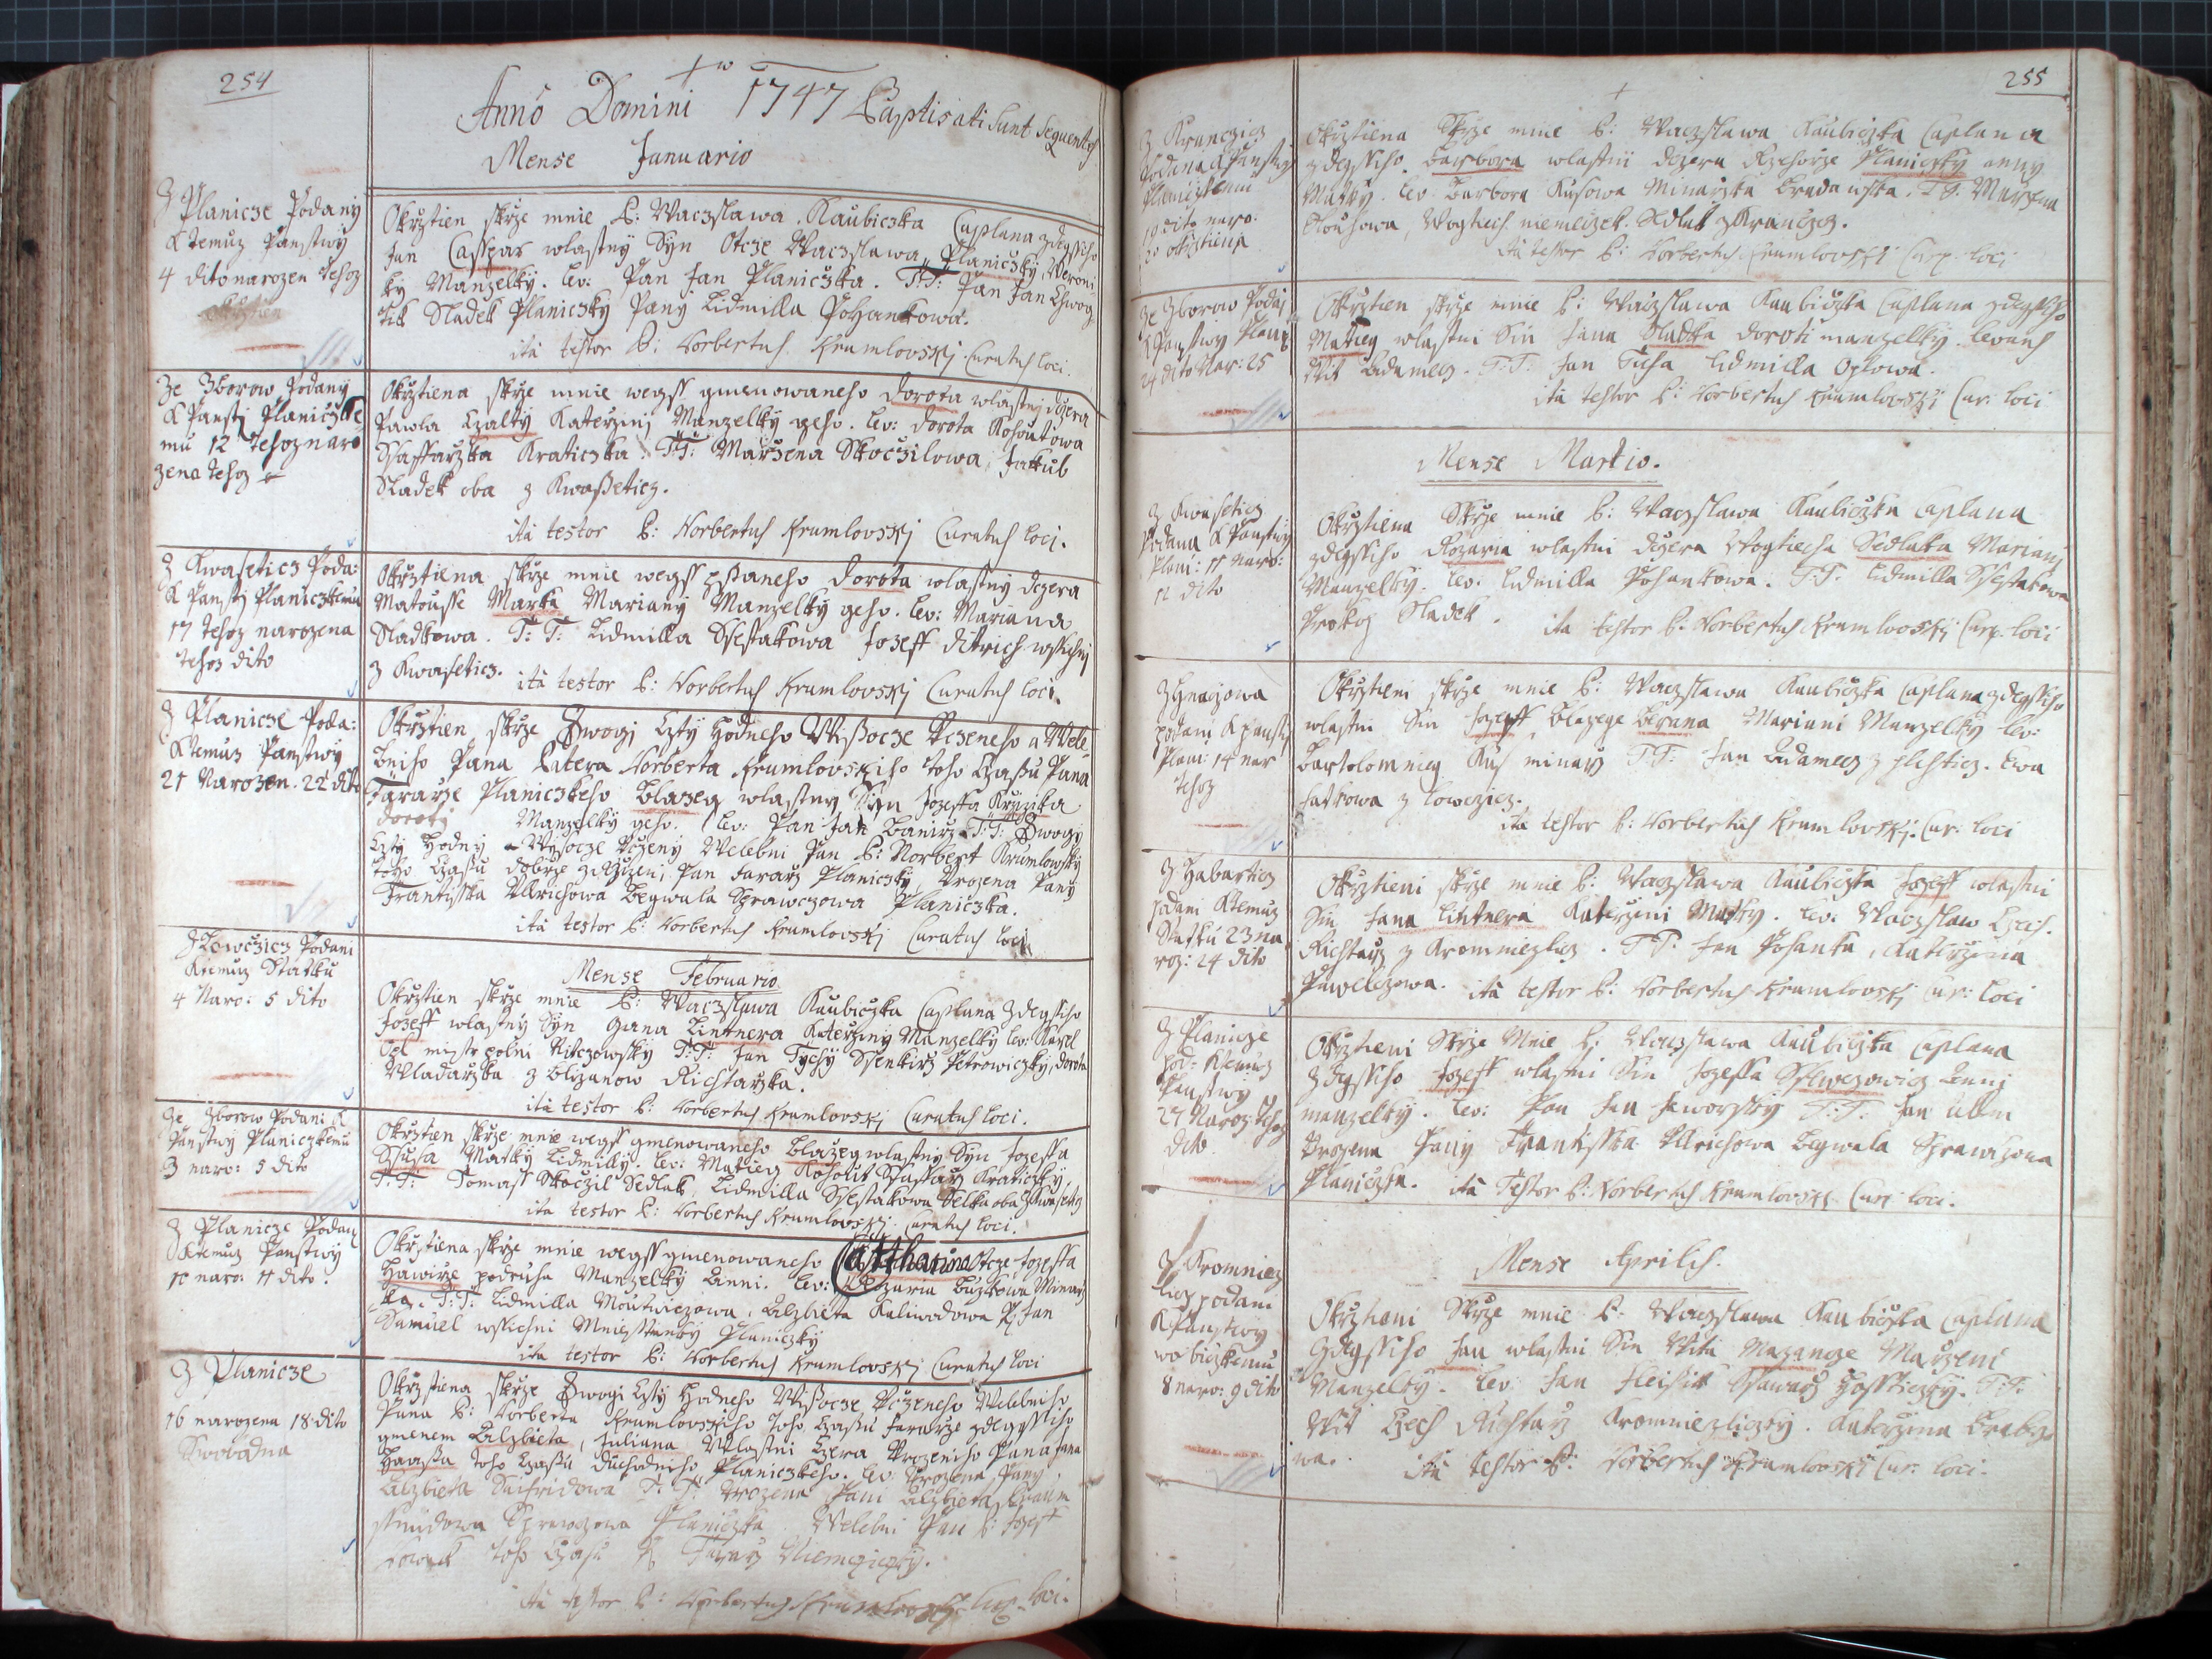 254
Anno Domini 1747 Baptisati sunt sequentes
Mense Januario
Z Planicze Podany
K temuz Panstwy
4 dito narozen tehoz
Okrztien skrze mnie P: Waczslawa Kaubiczka Caplana zdegssiho
Jan Casspar wlastny Syn Otcze Waczslawa Planiczky Weroni
ky Manzelky. Lev: Pan Jan Planiczka. T:T: Pan Jan
Sladek Planiczky Pany Lidmilla Pohankowa.
ita testor P: Norbertus Krumlovskj Curatus loci.
Ze Zborow Podany
K Panstj Planiczke
mu 12 tehoz naro
zena tehoz
Okrztiena skrze mnie wegss gmenowaneho Dorota wlastnj dczera
Pawla Czalty Katerzinj Manzelky geho. Lev: Dorota Kohoutowa
Ssaffarzka Kraticzka. T:T: Marzena Skoczilowa, Jakub
Sladek oba z Kwasseticz.
ita testor P: Norbertus Krumlovskj Curatus loci.
Z Kwaseticz Poda:
K Panstj Planiczkemu
17 tehoz narozena
tehoz dito
Okrztiena skrze mnie wegss psaneho Dorota wlastny dczera
Matousse Marka Mariany Manzelky geho. Lev: Mariana
Sladkowa. T:T: Lidmilla Ssestakowa Jozeff Ditrich wssichnj
z Kwaseticz.
ita testor P: Norbertus Krumlovskj Curatus loci.
Z Planicze Poda:
K temuz Panstwy
21 Narozen. 22 dito
Okrztien skrze Dwogj Czty Hodneho Wissocze Uczeneho a Wele
bniho Pana Patera Norberta Krumlovskiho toho Czassu Pana
Fararze Planiczkeho Blazeg wlastny Syn Jozeffa Krzizika
Doroty Manzelky geho. Lev: Pan Jan T:T: Dwogj
Czty Hodny Wysocze Uczeny Welebni Pan P: Norbert Krumlowsky
toho Czassu dobrze zdulzilenj, Pan Fararz Planiczky, Urozena Pany
Frantisska Ullrichowa Begwala Sprawczowa Planiczka.
ita testor P: Norbertus Krumlovskj Curatus loci
Mense Februario
Z Lowcziez Podani
K temuz Statku
4 Naro: 5 dito
Okrztien skrze mnie P: Waczslawa Kaubiczka Caplana Zdegssiho
Jozeff wlastny Syn Gana Lintnera Katerziny Manzelky Lev: Karel
mistr polni T:T: Jan Tychy Petrowiczky, Dorota
Wladarzka z Blizanow Richtarzka.
ita testor P: Norbertus Krumlovskj Curatus loci.
Ze Zborow Podani K
Panstwy Planiczkemu
3 naro: 5 dito
Okrztien skrze mnie wegss gmenowaneho Blazeg wlastny Syn Jozeffa
Matky Lidmilly. Lev: Matieg Kohout Ssaffarz Kraticzky,
T:T: Tomass Skoczil Sedlak, Lidmilla Ssestakowa Selka oba z Kwaseticz
ita testor P: Norbertus Krumlovskj Curatus loci.
Z Planicze Podan
K temuz Panstwy
10 naro: 11 dito.
Okrztiena skrze mnie wegss gmenowaneho Catharina Otcze Jozeffa
Hawirze podruha Manzelky Anni. Lev: Rozaria Minarz
ka. T:T: Lidmilla Moutniczowa, Alzbieta Kaliwodowa P: Jan
Samuel wssichni Mniesstianky Planiczky
ita testor P: Norbertus Krumlovskj Curatus loci
Z Planicze
16 narozena 18 dito
Swobodna
Okrzstiena skrze Dwogj Czty Hodneho Wissocze Uczeneho Welebniho
Pana P: Norberta Krumlovskiho toho Czassu Fararze zdegssiho
gmenem Alzbieta, Juliana Wlastni Czera Urozeniho Pana Jana
Haassa toho Czassu duchodniho Planiczkeho. Lev: Urozena Pany
Alzbieta Saifridowa T:T: Urozena Pani Alzbieta
Sprawczowa Planiczka. Welebni Pan P: Jozef
toho Czasu P: Fararz Niemcziczky.
ita testor P: Norbertus Krumlovskj Cur. loci.
255
Podana K Panstwj
Planiczkemu
19 dito naro:
20 okrztiena
Okrztiena Skrze mnie P: Waczslawa Kaubiczka Caplana
zdegssiho. Barbora wlastni dczera Rzehorze Planiczky anny
Matky. Lev Barbora Kusowa Minarzka. T:T: Marzena
Wogtiech niemeczek Sedlak z Kranczicz.
ita testor P: Norbertus Krumlovskj Cur. loci
Ze Zborow Poda:
K Panstwy Planicz
24 dito Nar: 25
Okrztien skrze mnie P: Waczslawa Kaubiczka Caplana zdegssiho
Matieg wlastni Sin Jana Sladka Doroti manzelky. Levans
Wit Adamecz. T:T: Jan Ticha Lidmilla
ita testor P: Norbertus Krumlovskj Cur: loci
Mense Martio.
Z Kwaseticz
Podana K Panstwy
Plani: 11 naro:
12 dito
Okrztiena Skrze mnie P: Waczslawa Kaubiczka Caplana
zdegssiho Rozaria wlastni dczera Wogtiecha Sedlaka Mariany
Manzelky. Lev: Lidmilla Pohankowa. T:T: Lidmilla Ssestakowa
Prokop Sladek.
ita testor P: Norbertus Krumlovskj Cur. loci
Z Hnaczowa
podani K panstj
Plani: 14 nar
tehoz
Okrztieni skrze mnie P: Waczslawa Kaubiczka Caplana zdegssiho
wlastni Sin Jozeff Blazege Berana Mariani Manzelky Lev:
Bartolomnieg Kus minarz T:T: Jan Adamecz z Ewa
z Lowcziez.
ita testor P: Norbertus Krumlovskj. Cur: loci
Z Habarticz
podani K temuz
Statku 23 na
roz: 24 dito
Okrztieni skrze mnie P: Waczslawa Kaubiczka Jozeff wlastni
Sin Jana Lintnera Katerzini Matky. Lev: Waczslaw Czech.
Richtarz z Kromniezlicz. T:T: Jan Pohanka, Katerzina
Paweleczowa.
ita testor P: Norbertus Krumlovskj Cur: loci
Z Planicze
pod: K temuz
Panstwy
24 Naroz: tehoz
dito
Okrztieni Skrze Mne P: Waczslawa Kaubiczka Caplana
Zdegssiho Jozeff wlastni Sin Jozeffa Annj
manzelky. Lev: Pan Jan Jaworsky T:T: Jan Ulm
Urozena Pany Frantisska Ullrichowa Begwala Sprawczowa
Planiczka.
ita Testor P: Norbertus Krumlovskj Cur: loci.
Mense Aprilis.
Z Kromniez
licz podani
K Panstwy
8 naro: 9 dito
Okrztieni Skrze mnie P: Waczslawa Kaubiczka Caplana
Zdegssiho Jan wlastni Sin Wita Mazancze Marzeni
Manzelky. Lev: Jan T:T:
Wit Czech Richtarz Kromniezliczky. Katerzina
wa.
ita testor P: Norbertus Krumlovskj Cur: loci.